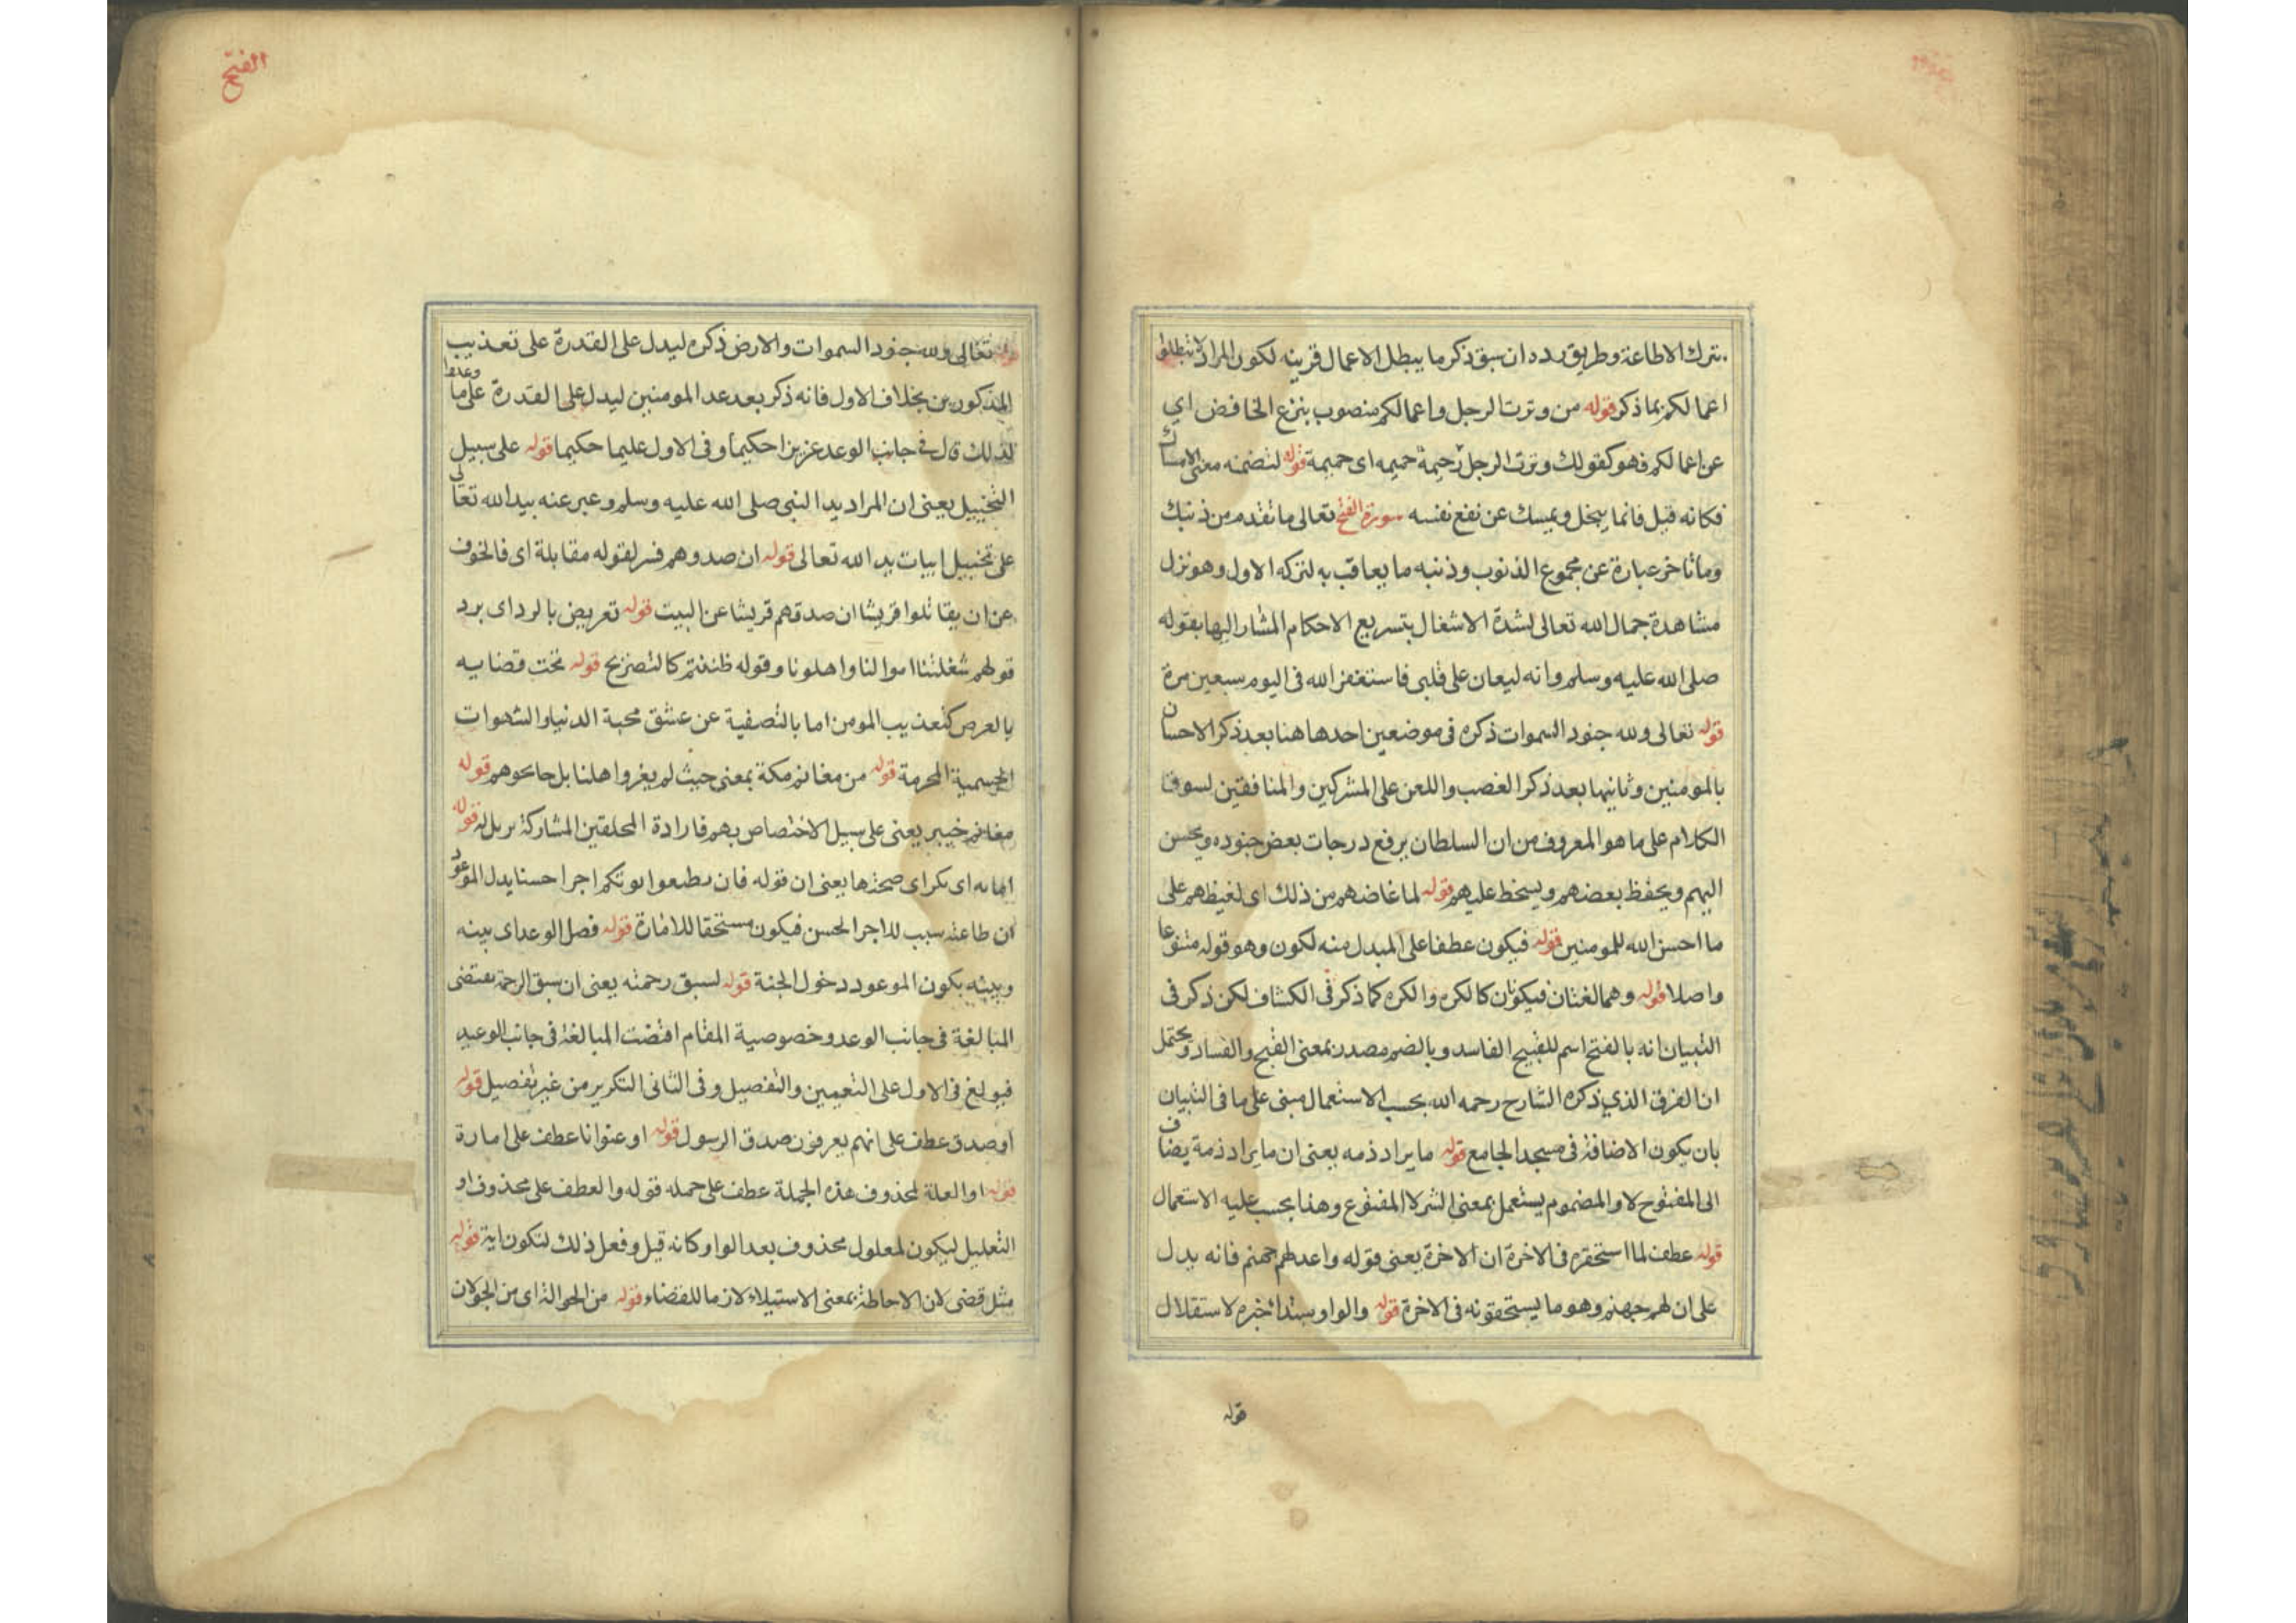 بترك الاطاعة وطريق رده ان سبق ذكر ما يبطل الاعمال قرينه لكون المراد لا تبطلوا
اعمالكم بما ذكر قوله من وترت الرجل واعمالكم منصوب بنزع الخافض اي
عن اعمالكم فهو كقولك وترت الرجل حميمه اى حميمة قوله لتضمنه معنى الامساك
فكانه قيل فانما يبخل ويمسك عن نفع نفسه سورة الفتح تعالى ما تقدم من ذنبك
وما تاخر عبارة عن مجموع الذنوب وذنبه ما يعاقب به لتركه الاول وهو نزل
مشاهدة جمال الله تعالى لشدة الاشغال بتسريع الاحكام المشار اليها بقوله
صلى الله عليه وسلم وانه ليعان على قلبى فاستغفر الله فى اليوم سبعين مرة
قوله تعالى ولله جنود السموات ذكره فى موضعين احدها هنا بعد ذكر الاحسان
بالمومنين وثانيها بعد ذكر الغصب واللعن على المشركين والمنافقين لسوق
الكلام على ما هو المعروف من ان السلطان يرفع درجات بعض جنوده ويحسن
اليهم ويحفظ بعضهم ويسخط عليهم قوله لما غاضهم من ذلك اى لغيظهم على
ما احسن الله للمومنين قوله فيكون عطفا على المبدل منه لكون وهو قوله متنوعا
واصلا قوله وهما لغتان فيكونان كالكره والكره كما ذكر فى الكشاف لكن ذكر فى
التبيان انه بالفتح اسم للقبيح الفاسد وبالضم مصدر بمعنى القبح والفساد ويحتمل
ان الفرق الذي ذكره الشارح رحمه الله بحسب الاستعمال مبنى على ما فى التبيان
بان يكون الاضافة فى مسجد الجامع قوله ما يراد ذمه يعنى ان ما يراد ذمة يضاف
الى المفتوح لا والمضموم يستعمل بمعنى الشر لا المفتوع وهذا بحسب عليه الاستعمال
قوله عطف لما استحقره فى الاخرة ان الاخرة يعنى قوله واعد لهم جهنم فانه يدل
على ان لهم جهنم وهو ما يستحقونه فى الاخرة قوله والواو ستدا خبره لاستقلال
قوله
الفتح
قوله تعالى ولله جنود السموات والارض ذكره ليدل على القدرة على تعذيب
المذكورين بخلاف الاول فانه ذكر بعد عد المومنين ليدل على القدرة على ما وعدها
لذلك قال فى جانب الوعد عزيزا حكيما وفى الاول عليما حكيما قوله على سبيل
التخييل يعنى ان المراد يد النبى صلى الله عليه وسلم وعبر عنه بيد الله تعالى
على تخييل ابيات يد الله تعالى قوله ان صدوهم فسر لقوله مقابلة اى فالخوف
عن ان يقاتلوا قريشا ان صدقهم قريشا عن البيت قوله تعريض بالرد اى برد
قولهم شغلتنا اموالنا واهلونا وقوله ظننتم كالتصريح قوله تحت قضايه
بالعرض كتعذيب المومن اما بالتصفية عن عشق محبة الدنيا والشهوات
الجسمية المحرمة قوله من مغانم مكة بمعنى حيث لم يغروا اهلنا بل حاكوهم قوله
مغانم خيبر يعنى على سبيل الاختصاص بهم فارادة المحلقين المشاركة قوله
اى صحتها يعنى ان قوله فان اجرا حسنا يدل الموعود
ان طاعته سبب للاجر الحسن فيكون مستحقا للامامة قوله فصل الوعد اى بينه
وبينه بكون الموعود دخول الجنة قوله لسبق رحمته يعنى ان سبق الرحمة يقتضى
المبالغة فى جانب الوعد وخصوصية المقام اقتضت المبالغة فى جانب الوعيد
فبولغ فى الاول على التعيين والتفصيل وفى الثانى التكرير من غير تفصيل قوله
او صدق عطف على انهم يعرفون صدق الرسول قوله او عنوانا عطف على امارة
قوله او العلة لمحذوف هذه الجملة عطف على جمله قوله والعطف على محذوف او
التعليل ليكون لمعلول محذوف بعد الواو وكانه قيل وفعل ذلك لتكون اية قوله
مثل قضى لان الاحاطة بمعنى الاستيلاء لازما للقضاء قوله من الجوالة اى من الجولان